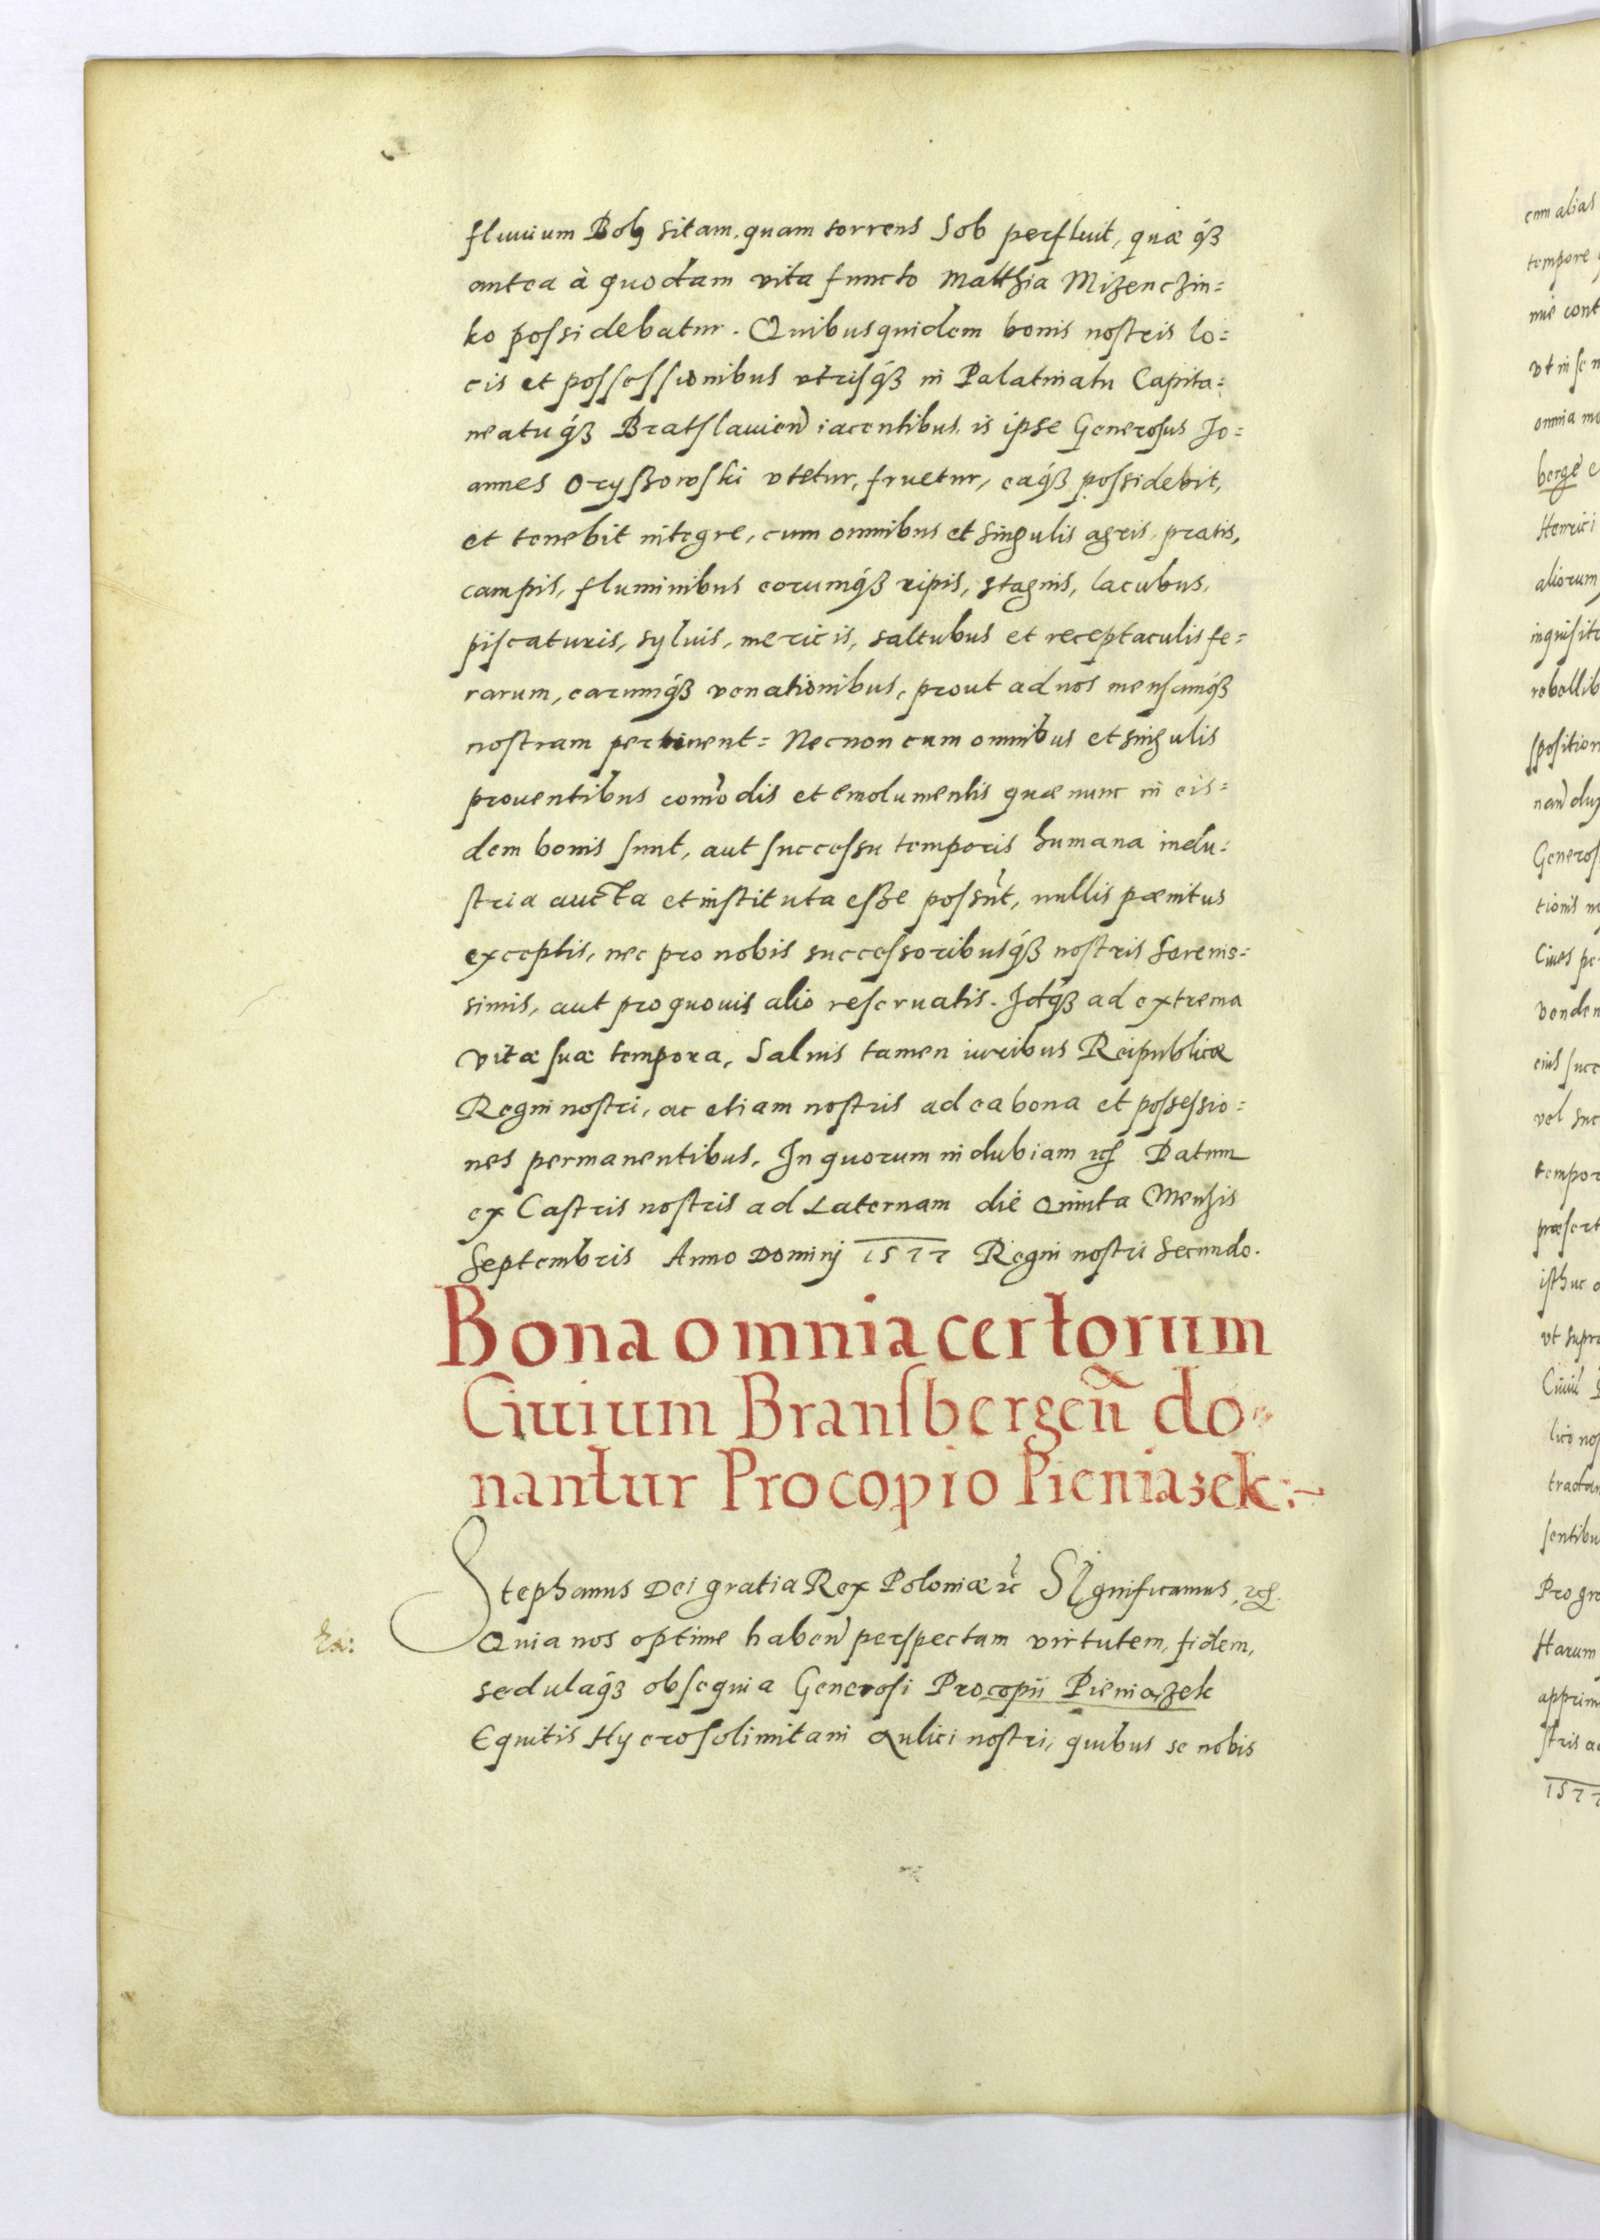 fluuium Boh sitam, quam torrens Sob perfluit, quæ q́ꝫ
antea à quodam vita functo Matthia Mizenczin=
ko possidebatur. Quibusquidem bonis nostris lo=
cis et possessionibus vtrisq́ꝫ in Palatinatu Capita=
neatuq́ꝫ Bratslauien̄ iacentibus, is ipse Generosus Jo=
annes Oryszowski vtetur, fruetur, eaq́ꝫ possidebit,
et tenebit integre, cum omnibus et singulis agris, pratis,
campis, fluminibus eorumq́ꝫ ripis, stagnis, lacubus,
piscaturis, syluis, mericis, saltubus et receptaculis fe=
rarum, earumq́ꝫ venationibus, prout ad nos mensamq́ꝫ
nostram pertinent= Necnon cum omnibus et singulis
prouentibus com̄odis et emolumentis quæ nunc in eis=
dem bonis sunt, aut successu temporis humana indu=
stria aucta et instituta esse possūt, nullis pænitus
exceptis, nec pro nobis successoribusq́ꝫ nostris Serenis=
simis, aut pro quouis alio reseruatis. Idq́ꝫ ad extrema
vitæ suæ tempora, Saluis tamen iuribus Reipublicæ
Regni nostri, ac etiam nostris ad ea bona et possessio=
nes permanentibus. In quorum indubiam ꝛcꝭ Datum
ex Castris nostris ad Laternam die Quinta Mensis
Septembris Anno Dominij 1577 Regni nostri Secundo.
Bona omnia certorum
Ciuium Bransbergen̄ do-
nantur Procopio Pieniazek:~
Stephanus Dei gratia Rex Poloniæ ꝛc̄ Significamus, ꝛcꝭ.
Quia nos optime haben̄ perspectam virtutem, fidem,
sedulaq́ꝫ obsequia Generosi Procopii Pieniazek
Equitis Hyerosolimitani Aulici nostri, quibus se nobis
cum alias
tempore
omnia
berge
Henrici
aliorum
Generos
tionis
Ciues
eius succ
vel suc
tempor
isthuc
vt supra
Pro gra
Harum
stris